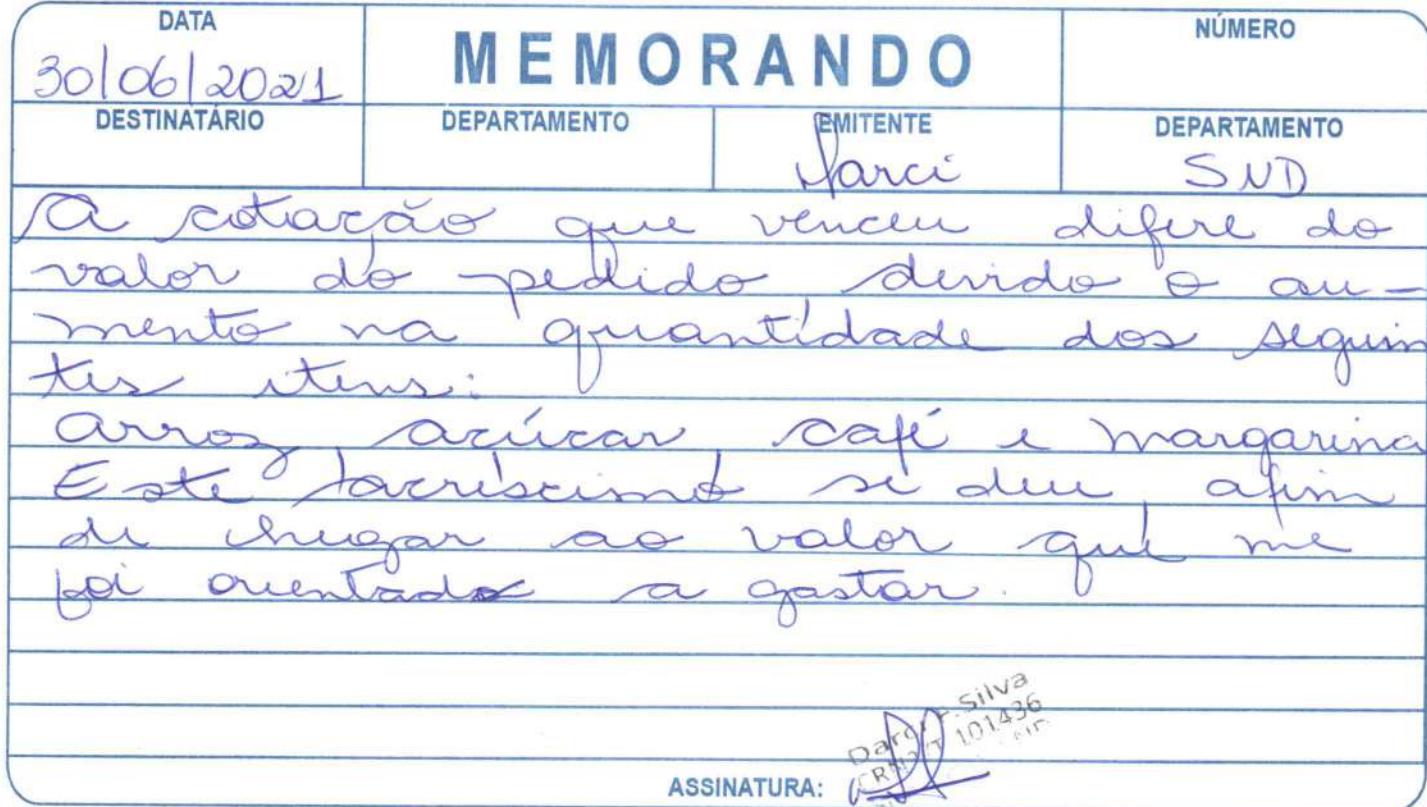 DATA
30/06/2021
MEMORANDO
NÚMERO
DESTINATÁRIO
DEPARTAMENTO
EMITENTE
Darci
DEPARTAMENTO
SND
A cotação que venceu difere do
valor do pedido devido o au-
mento na quantidade dos seguin
tes itens:
arroz, açúcar, café e margarina
Este acréscimo se deu, afim
de chegar ao valor que me
foi orientado a gastar.
Silva
101436
ASSINATURA: